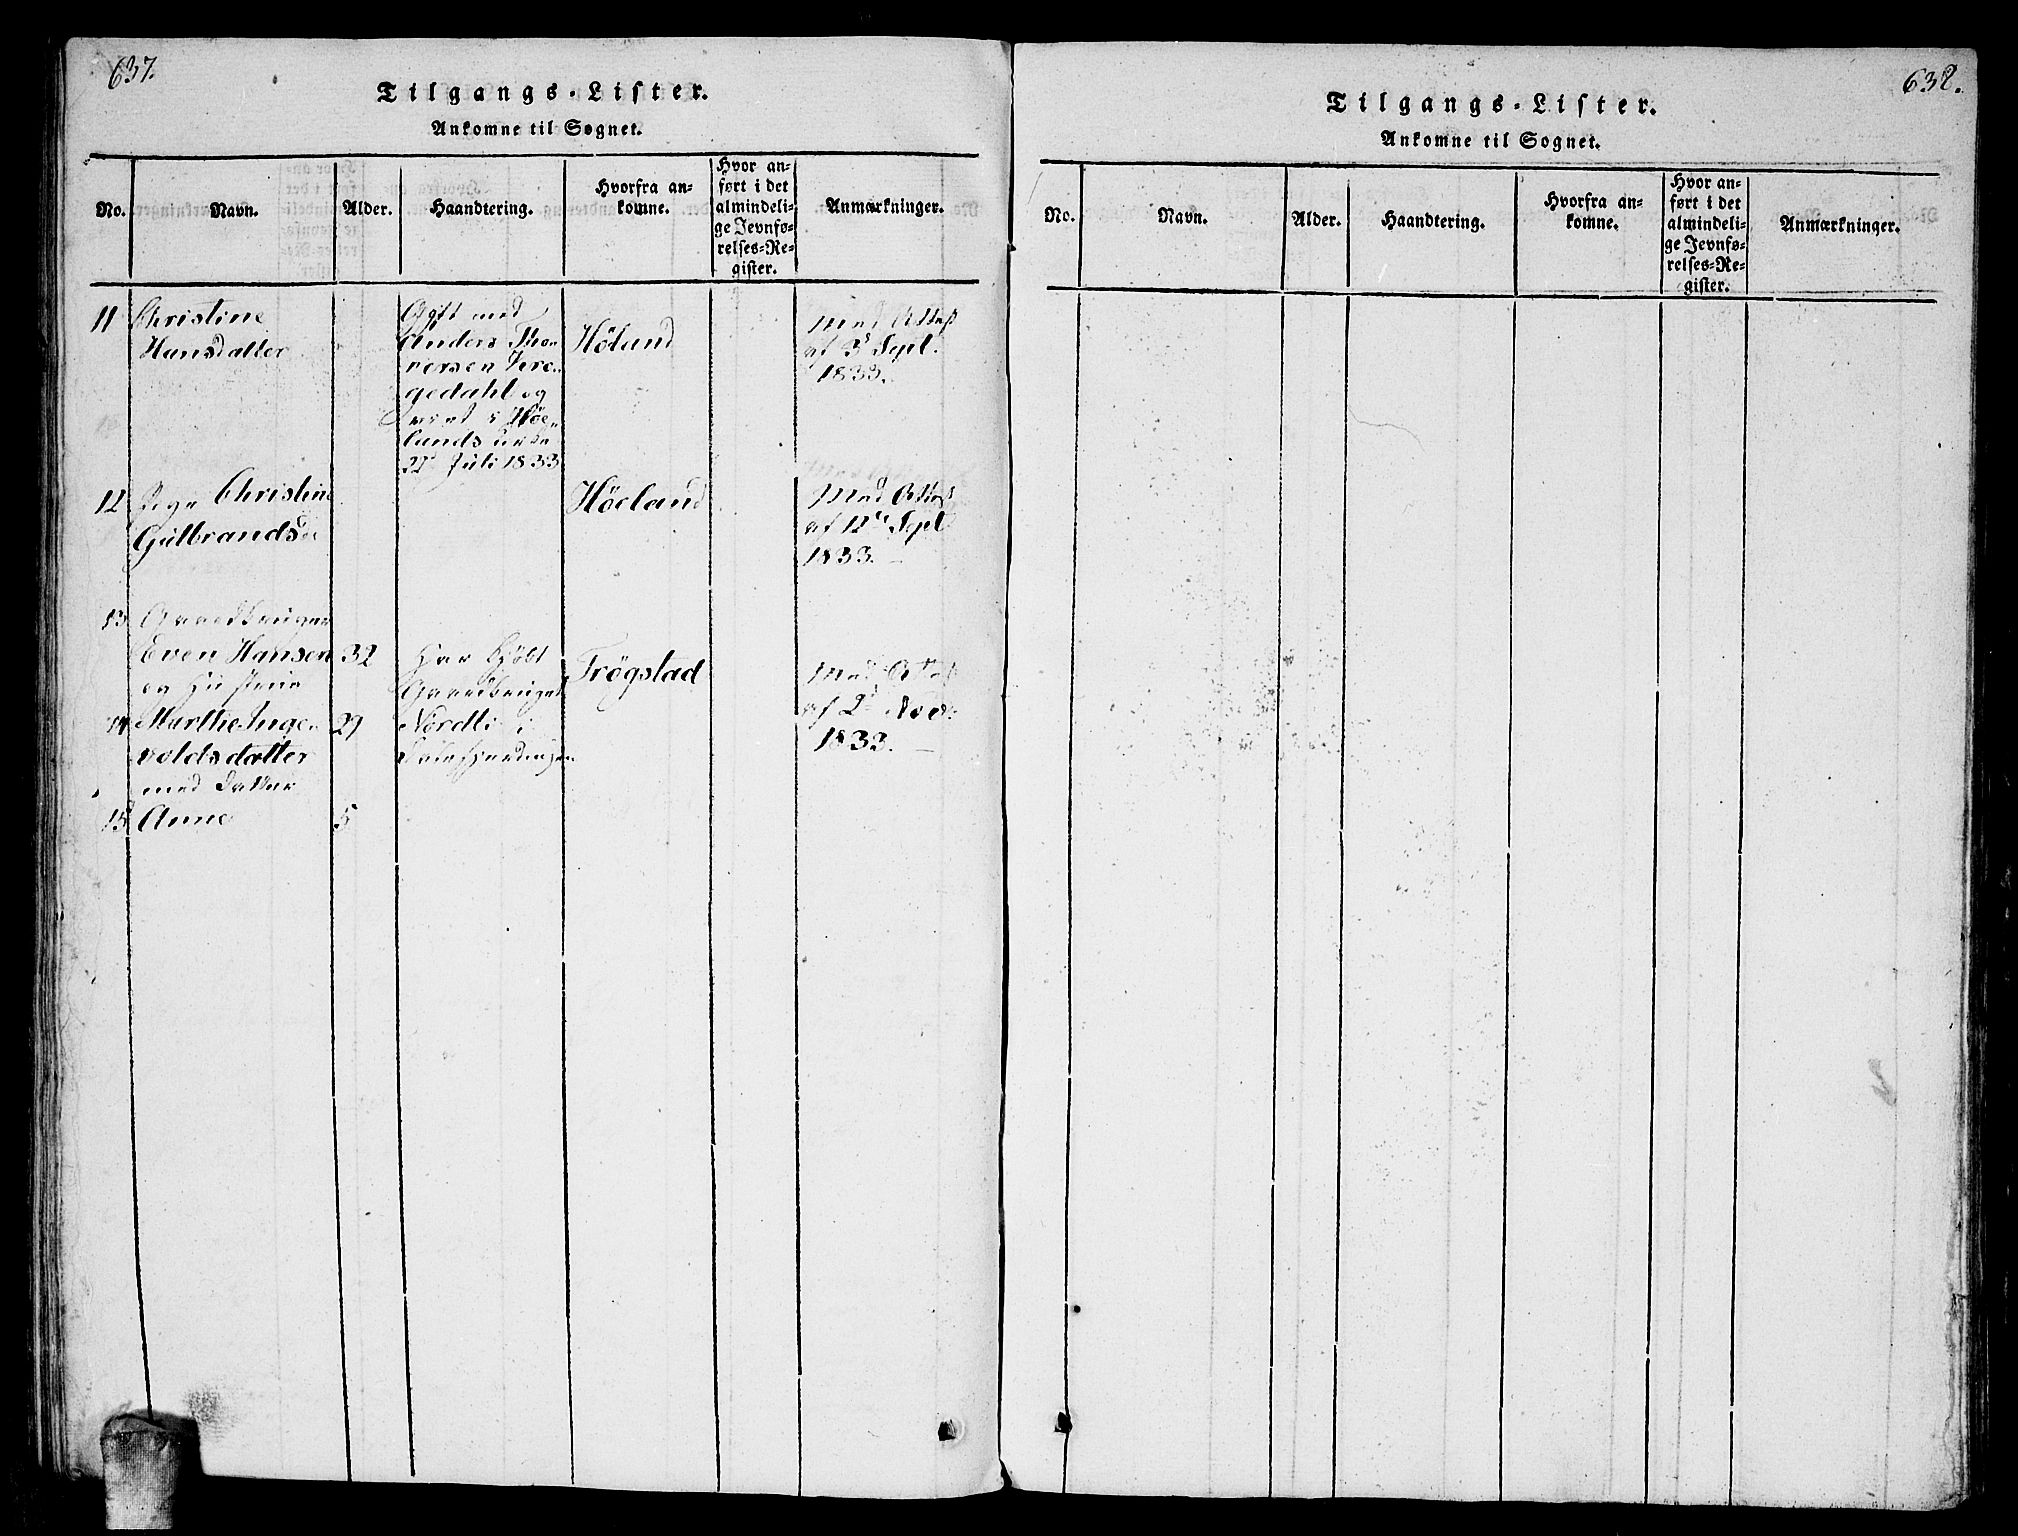 637.
Tilgangs-Lister.
Ankomne til Sognet.
No.
Navn.
Alder.
Haandtering.
Hvorfra an=
komne.
Hvor an=
ført i det
almindeli=
ge Jevnfø=
relses=Re=
gister.
Anmærkninger.
11
Christine
Hansdatter
Gift med
Anders Tho
rersen
gedahl og
Høe
lands
22d Juli 1833
Höland
Med Attest
af 3d Sept.
1833.
12
Pige Christine
Gulbrandsd
Höeland
Med Attest
af 12te Sept
1833.
13
Gaardbruger
Even Hansen
32
og Hustrue
14
Marthe Inge
voldsdatter
29
med Datter
15
Anne
5
Har kjöbt
Gaardbruget
Nordli i
Trögstad
Med Attest
af 2d Novr
1833.
638.
Tilgangs-Lister.
Ankomne til Sognet.
No.
Navn.
Alder.
Haandtering.
Hvorfra an=
komne.
Hvor an=
ført i det
almindeli=
ge Jevnfø=
relses=Re=
gister.
Anmærkninger.